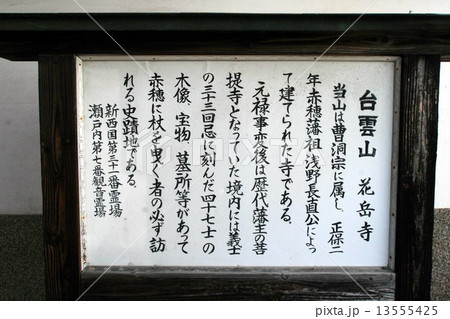 台雲山 花岳寺
当山は曹洞宗に属し、正保二
年赤穂藩祖浅野長直公によっ
て建てられた寺である。
元禄事変後は歴代藩主の菩
提寺となっていた境内には義士
の三十三回忌に刻んだ四十七士の
木像、宝物、墓所等があって
赤穂に杖を曳く者の必ず訪
れる史蹟地である。
新西国第三十一番霊場
瀬戸内第七番観音霊場
13555425